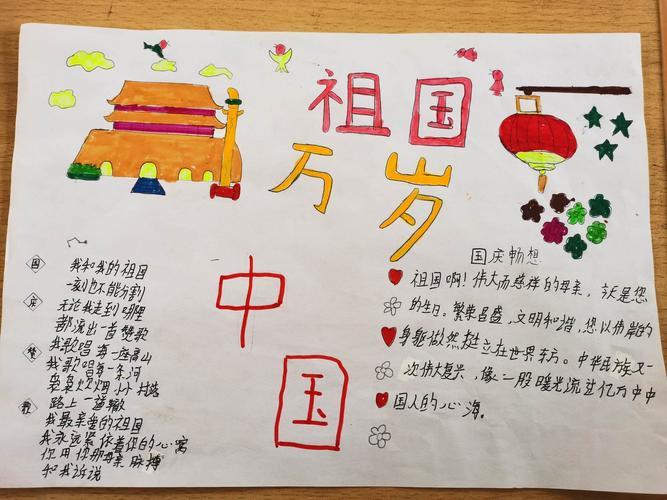 祖国
万岁
中
国
国
庆
隆
教
我和我的祖国
一刻也不能分割
无论我走到哪里
都流出一首赞歌
我歌唱每一座高山
我歌唱每一条河
袅袅炊烟小小村落
路上一道辙
我最亲爱的祖国
我永远紧依着你的心窝
你用你那母亲脉搏
和我诉说
国庆畅想
祖国啊!伟大而慈祥的母亲,今天是您
的生日。繁荣昌盛,文明和谐,您以伟岸的
身躯傲然挺立在世界东方。中华民族又一
次伟大复兴,像一股暖光流过亿万中中
国人的心海。